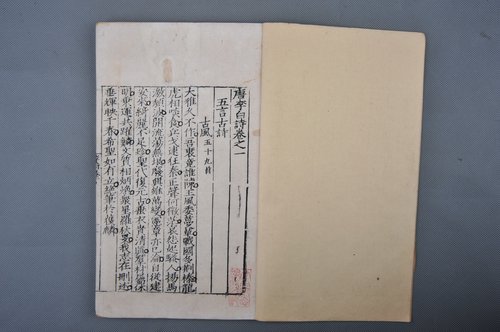 唐李白詩卷之一
五言古詩
古風五十九首
大雅久不作吾衰竟誰陳王風委蔓草戰國多荆榛龍
虎相啖食兵戈逮狂秦正聲何微茫哀怨起騷人揚馬
激頹波開流蕩無垠廢興雖萬變憲章亦已淪自從建
安來綺麗不足珍聖代復元古垂衣貴清真羣才屬休
明乘運共躍鱗文質相炳煥衆星羅秋旻我志在刪述
垂輝映千春希聖如有立絕筆於獲麟